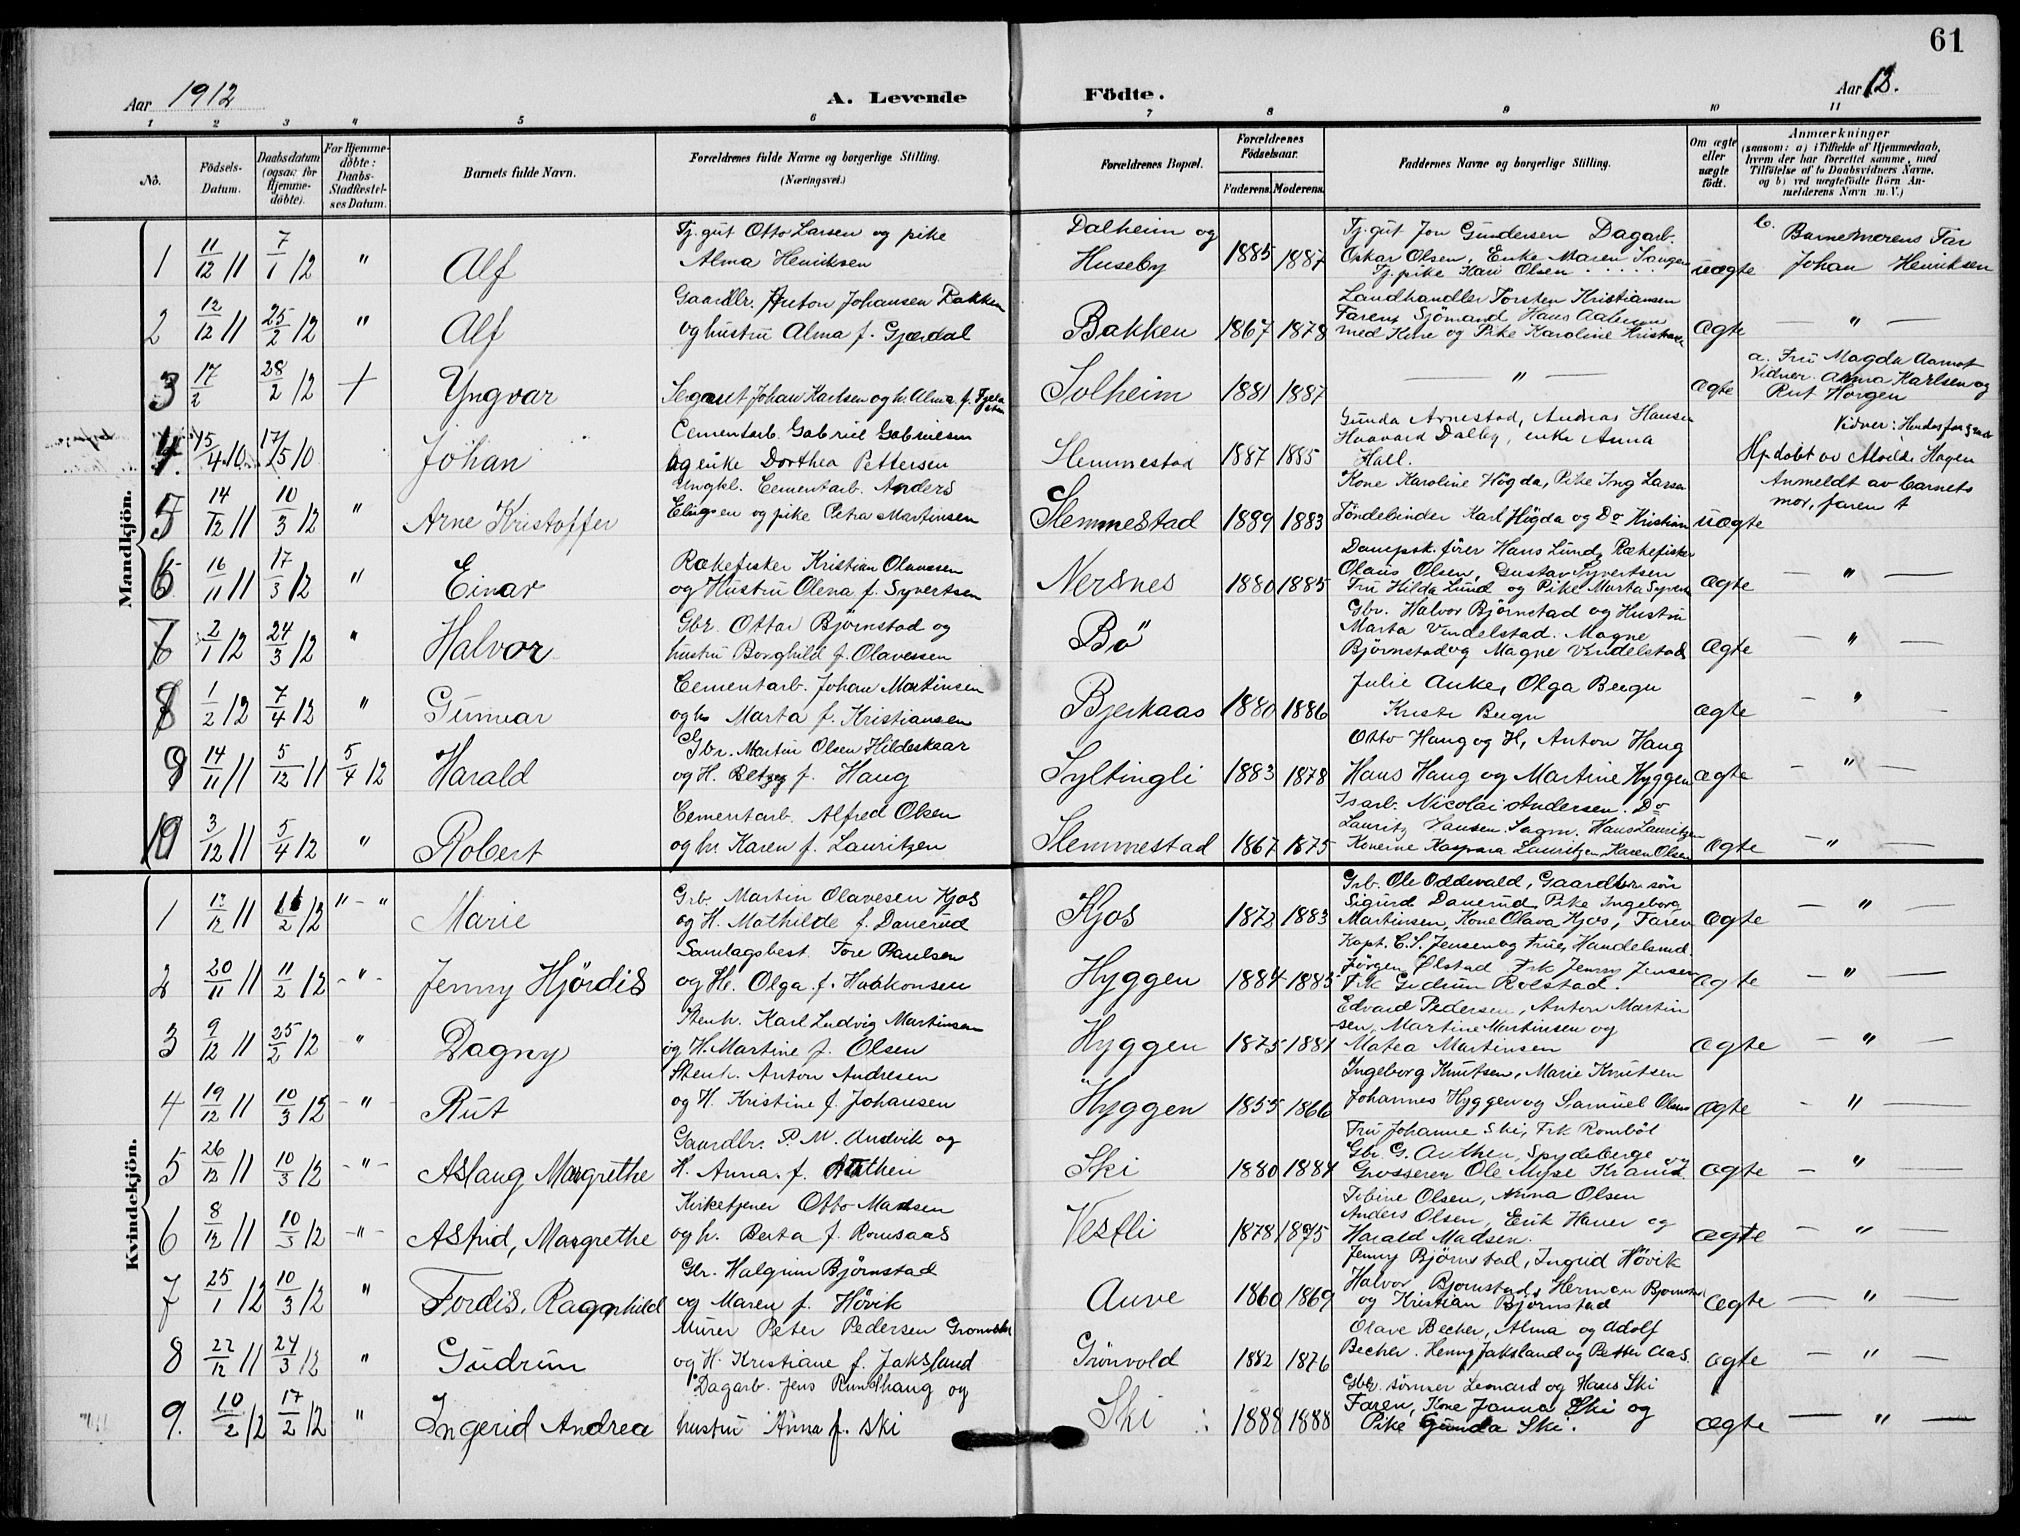 61
Aar 1912 A. Levende Födte. Aar 12.
1 2 3 4 5 6 7 8 9 10 11
No. Födsels-Datum. Daabsdatum (ogsaa for Hjemme-döbte). For Hjemme-döbte: Daabs-Stadfæstel-ses Datum. Barnets fulde Navn. Forældrenes fulde Navne og borgerlige Stilling. (Næringsvei.) Forældrenes Bopæl. Forældrenes Födselsaar. Faderens. Moderens. Faddernes Navne og borgerlige Stilling. Om ægte eller uægte födt. Anmærkninger (saasom: a) i Tilfælde af Hjemmedaab, hvem der har forrettet samme, med Tilföielse af to Daabsvidners Navne, og b) ved uægtefödte Börn An-melderens Navn m. V.)
Mandkjön.
1 11/12 11 7/1 12 " Alf Tj.gut Otto Larsen og pike
Alma Henriksen
Dalheim og
Huseby 1885 1887 Tj.gut Jon Gundersen Dagarb.
Oskar Olsen, Enke Maren
Tj. pike Kari Olsen uægte b. Barnemorens Far
Johan Henriksen
2 12/12 11 25/2 12 " Alf Gaardbr. Anton Johansen Bakken
og hustru Alma f. Gjerdal
Bakken 1867 1878 Landhandler Torsten Kristiansen
Faren, Sjömand Hans
med Kone og Pike Karoline ægte — " —
3 17/2 28/2 12 + Yngvar Johan Karlsen og h. Alma f.
Solheim 1881 1887 — " — ægte a. Fru Magda Aamot
Vidner. Alma Karlsen og
Rut Horgen
4. 15/4 10 17/5 10 Johan Cementarb. Gabriel Gabrielsen
og enke Dorthea Pettersen
Slemmestad 1887 1885 Gunda Arnestad, Andras Hansen
Haavard Dalby, enke Anna
Hall.
Vidner:
Hj. döbt av Alvilde Hagen
5 14/12 11 10/3 12 " Arne Kristoffer Ungkl. Cementarb. Anders
Elingsen og pike Petra Martinsen
Slemmestad 1889 1883 Kone Karoline Högda, Pike Ing Larsen
Töndebinder Karl Högda og Do Kristian uægte Anmeldt av barnets
mor, faren †
6 16/11 11 17/3 12 " Einar Rækefisker Kristian Olavesen
og Hustru Olena f. Syvertsen
Nersnes 1880 1885 Dampsk. förer Hans Lund, Rækefisker
Olaus Olsen, Gustav Syvertsen
Fru Hilda Lund og Pike Marta ægte — " —
7 2/1 12 24/3 12 " Halvor Gbr. Ottar Björnstad og
hustru Borghild f. Olavessen
Bö Gbr. Halvor Björnstad og Hustru
Marta Vendelstad. Magne
Björnstad og Magne Vendelstad ægte — " —
8 1/2 12 7/4 12 " Gunnar Cementarb. Johan Martinsen
og h Marta f. Kristiansen
Bjerkaas 1880 1886 Julie Auke, Olga
ægte — "
9 14/11 11 5/12 11 5/4 12 Harald Gbr. Martin Olsen Hildeskaar
og H. Betzy f. Haug
Syltingli 1883 1878 Otto Haug og H, Anton Haug
Hans Haug og Martine Hyggen ægte — " —
10 3/12 11 5/4 12 " Robert Cementarb. Alfred Olsen
og h. Karen f. Lauritzen
Slemmestad 1867 1875 Isarb. Nicolai Andersen. Do
Lauritz Hansen. Sagm. Hans Lauritzen
Konerne Kaspara Lauritzen, Karen Olsen ægte — " —
Kvindekjön.
1 11 11/2 12 " - " Marie Grb. Martin Olavesen Kjos
og H. Mathilde f. Danerud
Kjos 1872 1883 Grb. Ole Oddevald, Gaardbr sön
Sigurd Danerud, Pike Ingeborg
Martinsen, Kone Olava Kjos, Faren ægte — " —
2 20/11 11 11/2 12 - " - Jenny Hjördis Samlagsbest. Tore Paulsen
og H. Olga f. Haakonsen
Hyggen 1884 1885 Kapt. C. S. Jensen og Frue, Handelsmd.
Jörgen Ölstad Frk Jenny Jensen
Frk Gudrun Rolstad. ægte — " —
3 9/12 11 25/2 12 " Dagny Stenh. Karl Ludvig Martinsen
og H. Martine f. Olsen
Hyggen 1875 1881 Edvard Pedersen, Anton Martin
sen, Martine Martinsen og
Matea Martinsen ægte — " —
4 19/12 11 10/3 12 - " - Rut Stenh. Anton Andresen
og H. Kristine f. Johansen
Hyggen 1855 1866 Ingeborg Knutsen, Marie Knutsen
Johannes Hyggen og Samuel Olsen ægte — " —
5 26/12 11 10/3 12 - " - Aslaug Margrethe Gaardbr. P. M. Andvik og
H. Anna f. Authen
Ski 1880 1884 Fru Johanne Ski, Frk Romböl
Gbr. G. Authen, Spydeberg og
Grosserer Ole Myse ægte — " —
6 8/12 11 10/3 12 - " - Astrid, Margrethe Kirketjener Otto Madsen
og h. Berta f. Romsaas
Vestli 1878 1875 Olsen, Anna Olsen
Anders Olsen, Erik og
Harald Madsen. ægte — " —
7 25/1 12 10/3 12 " Tordis, Ragnhild Gbr. Halgrim Björnstad
og Maren f. Hövik
Auve 1860 1869 Jenny Björnstad, Ingrid Hövik
Halvor Bjornstad, Herman Bjornstad
og Kristian Björnstad ægte — " —
8 22/12 11 24/3 12 " Gudrun Murer Peter Pedersen Gronvold
og H. Kristiane f. Jaksland
Grönvold 1882 1876 Olave Becher, Alma og Adolf
Becher. Henry Jaksland og Petter Aas. ægte — " —
9. 10/2 12 17/2 12 " Ingerid Andrea Dagarb. Jens Rundhaug og
hustru Anna f. Ski
Ski 1888 1888 Gbr. sönner Leonard og Hans Ski
Faren, Kone Janna Ski og
Pike Gunda Ski. ægte — " —